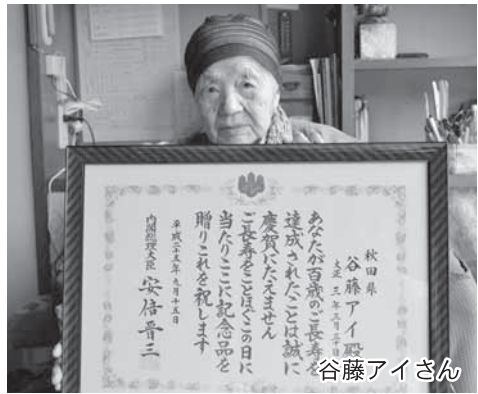 秋田県
谷藤アイ殿
大正三年三月三十日
あなたが百歳のご長寿を
達成されたことは誠に
慶賀にたえません
ご長寿をことほぐこの日に
当たりここに記念品を
贈りこれを祝します
平成二十五年九月十五日
内閣総理大臣 安倍晋三
谷藤アイさん